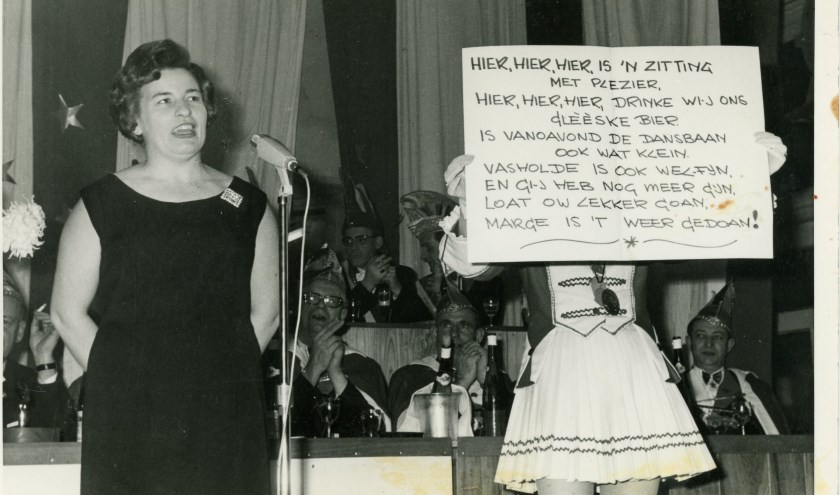 HIER, HIER, HIER, IS 'N ZITTING
MET PLEZIER,
HIER, HIER, HIER, DRINKE WIJ ONS
GLÈÈSKE BIER
IS VANOAVOND DE DANSBAAN
OOK WAT KLEIN.
VASHOLDE IS OOK WEL FIJN,
EN GIJ HEB NOG MEER GIJN,
LOAT OW LEKKER GOAN,
MARGE IS 'T WEER GEDOAN!